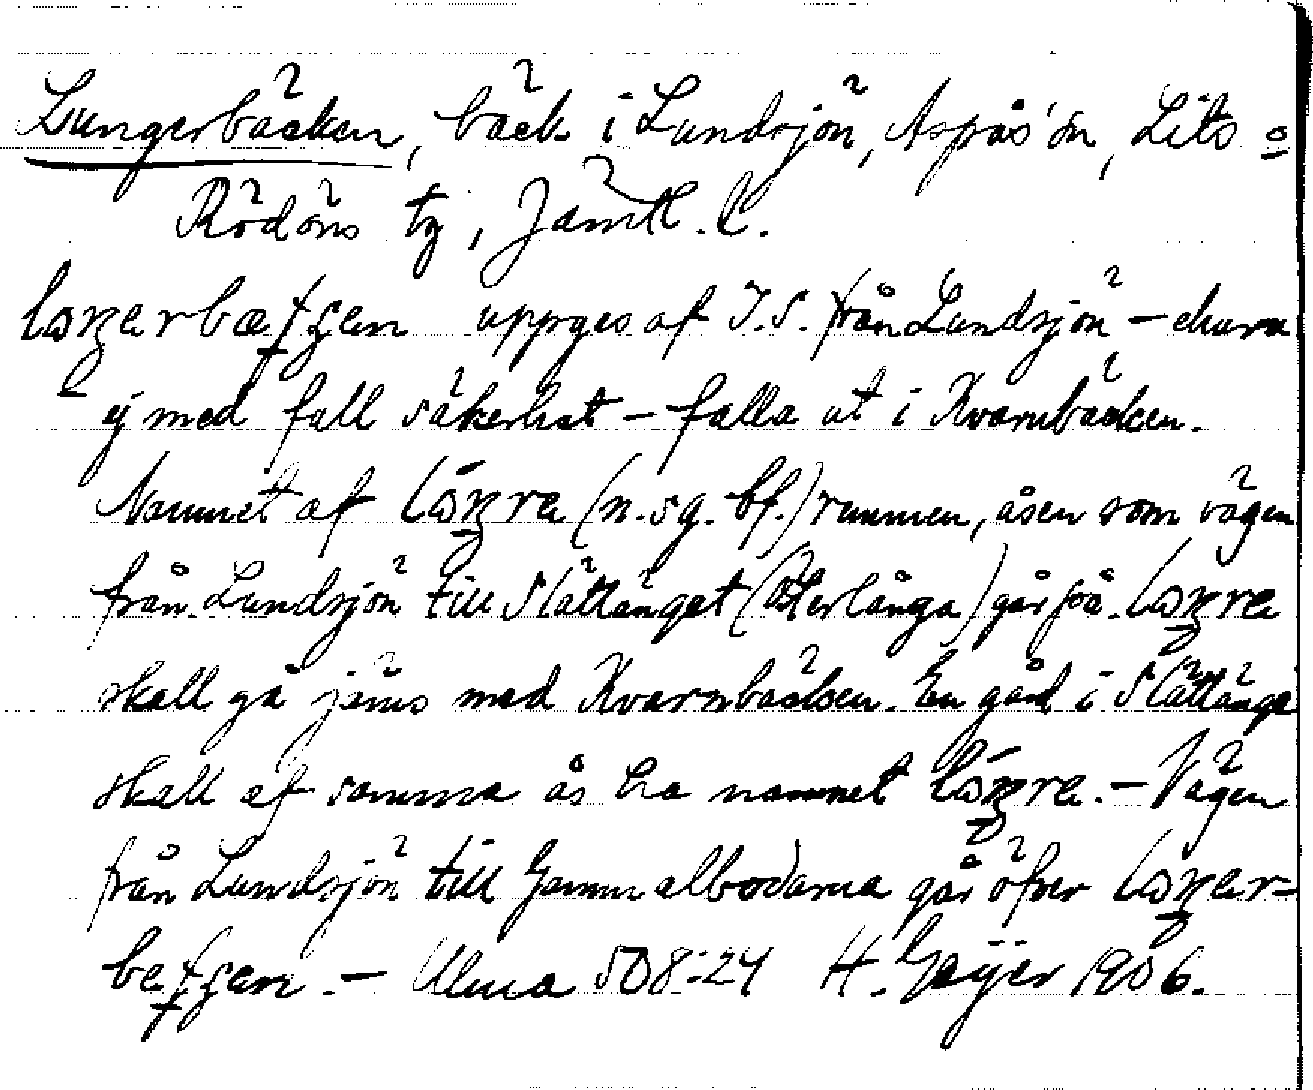 Lungerbäcken, bäck i Lundsjön, Aspås sn, Lits o
Rödöns tg, Jämtl. l.
uppges af J.S. från Lundsjön – churu
ej med full säkerhet – falla ut i Kvarnbäcken.
Namnet af (n. sg. bf.) rummen, åsen som vägen
från Lundsjön till Slättänget (Österlånga) går på.
skall gå jäms med Kvarnbäcken. En gård i Slättänge
skall af samma ås ha namnet – Vägen
från Lundsjön till Gammalbodarna går öfver
– Ulma 508:24 H. Geijer 1906.